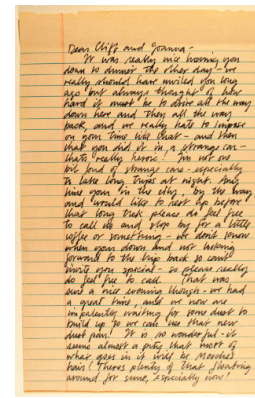 Dear Cliff and Joanna -
It was really nice having you
down to dinner the other day - we
really should have invited you long
ago but always thought of how
hard it must be to drive all the way
down here and then all the way
back, and we really hate to impose
on your time like that - and then
that you did it in a strange car -
that's really heroic! I'm not one
bit fond of strange cars - especially
to take long trips at night. Any
time you're in the city, by the way
and would like to rest up before
that long trek please do feel free
to call us and stop by for a little
coffee or something - we don't know
when you're down and not looking
forward to the trip back so can't
invite you special - so please really
do feel free to call. That was
sure a nice evening though - we had
a great time, and we now are
impatiently waiting for some dust to
build up so we can use that new
dust pan! It is so wonderful - it
seems almost a pity that most of
what goes in it will be
hairs! There's plenty of that floating
around for sure, especially now!